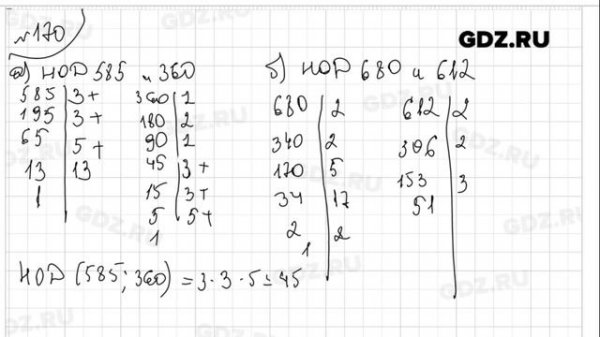 №170
GDZ.RU
а) НОД 585 и 360
б) НОД 680 и 612
585 | 3+
195 | 3+
65 | 5+
13 | 13
1
360 | 2
180 | 2
90 | 2
45 | 3+
15 | 3+
5 | 5+
1
680 | 2
340 | 2
170 | 5
34 | 17
2 | 2
1
612 | 2
306 | 2
153 | 3
51
НОД (585; 360) = 3·3·5 = 45